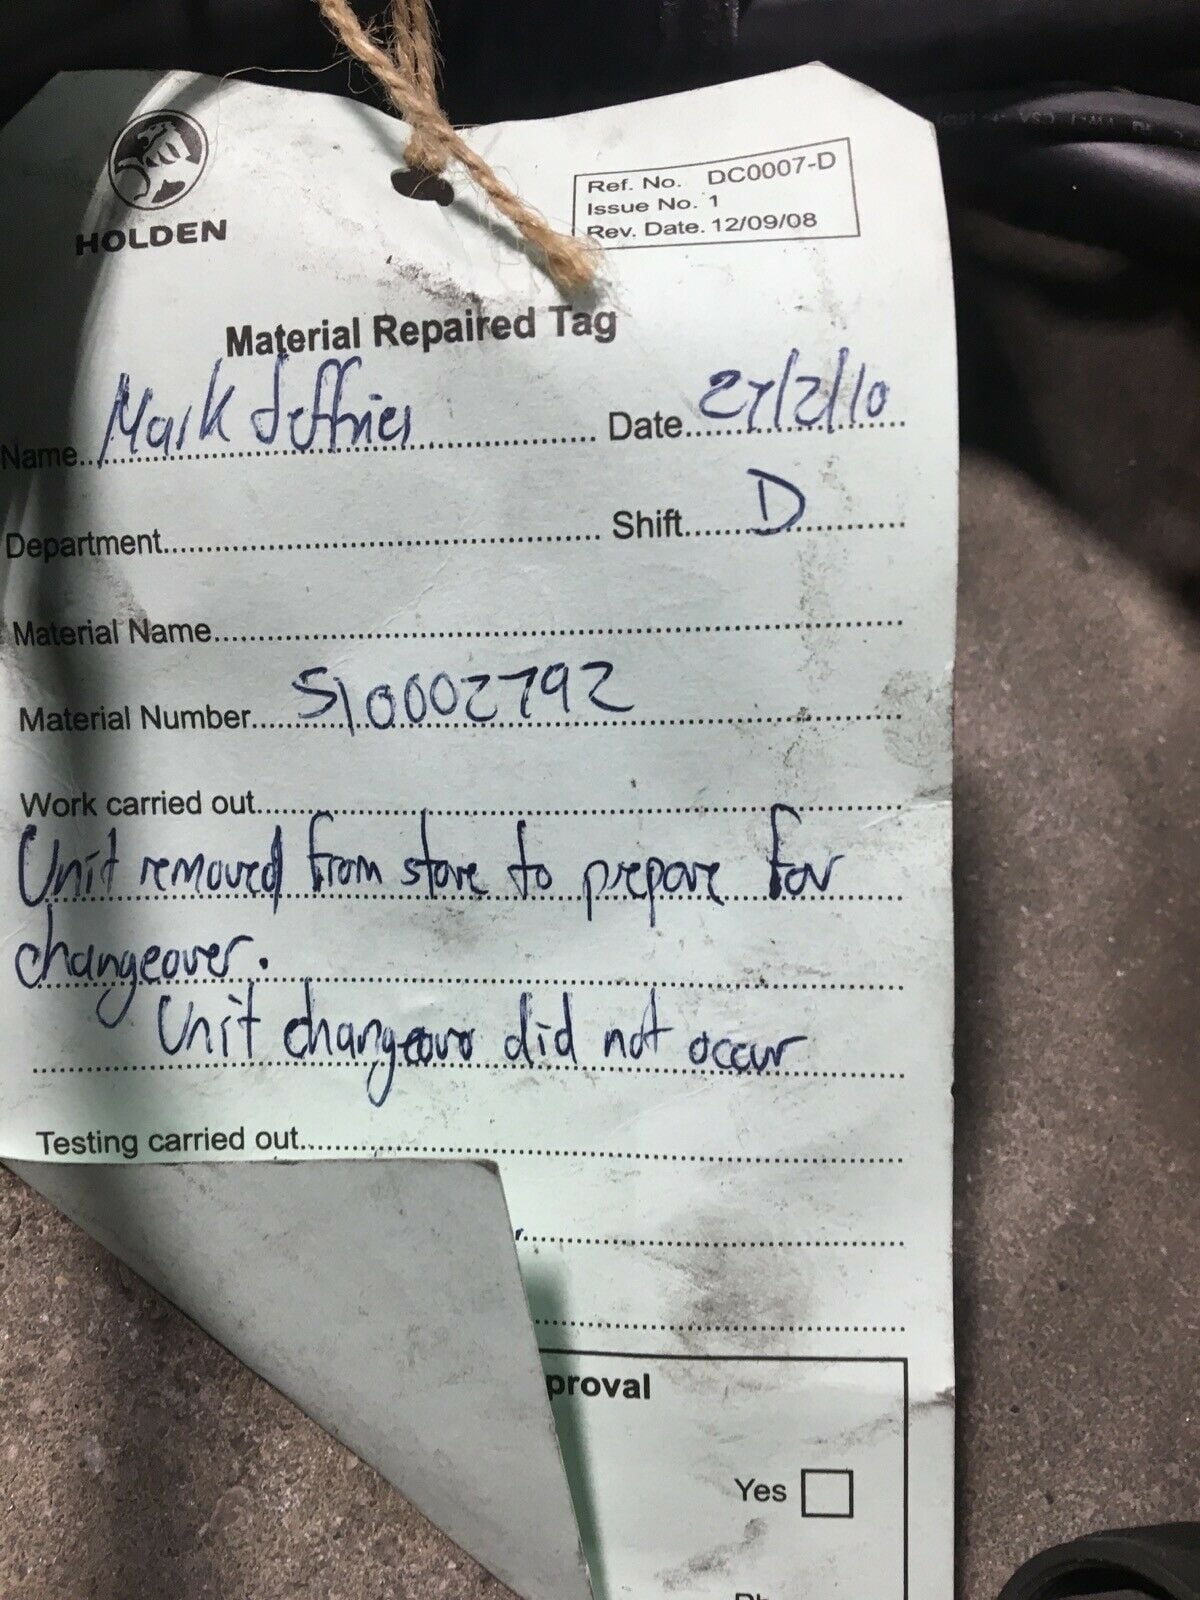 HOLDEN
Ref. No. DC0007-D
Issue No. 1
Rev. Date. 12/09/08
Material Repaired Tag
Name Mark Jeffries Date 27/2/10
Department Shift D
Material Name
Material Number S10002792
Work carried out
Unit removed from store to prepare for
changeover.
Unit changeover did not occur
Testing carried out
proval
Yes